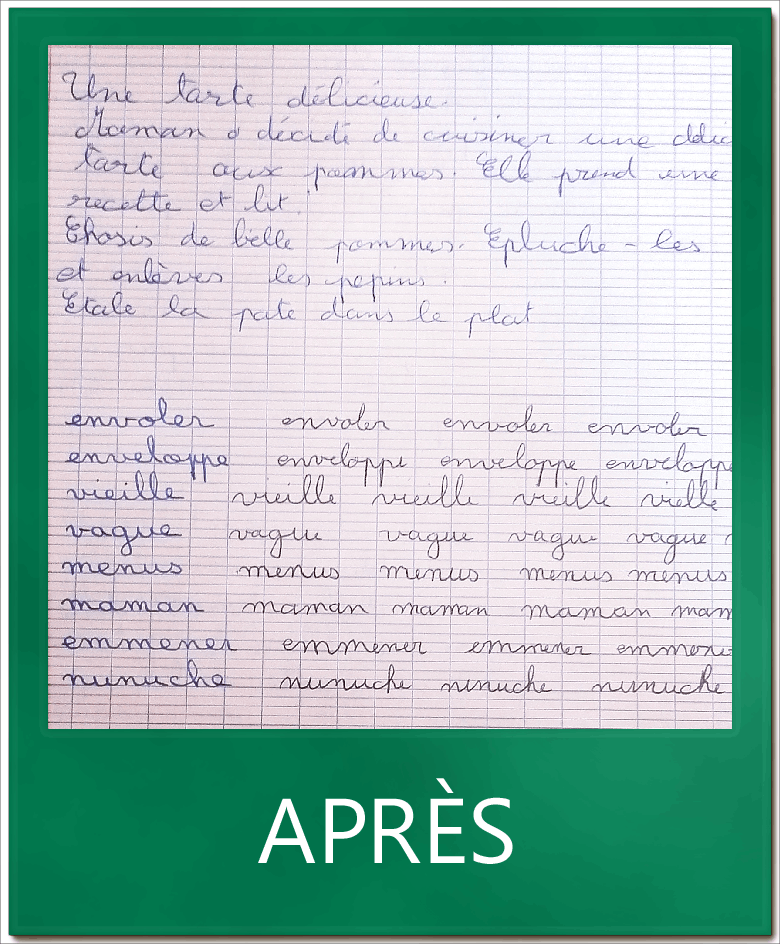 Une tarte délicieuse.
Maman a décidé de cuisiner une délic
tarte aux pommes. Elle prend une
recette et lit :
Chosis de belle pommes. Epluche - les
et enlèves les pepins.
Etale la pate dans le plat
envoler envoler envoler envoler
enveloppe enveloppe enveloppe enveloppe
vieille vieille vieille vieille vielle
vague vague vague vague vague
menus menus menus menus menus
maman maman maman maman mam
emmener emmener emmener emmene
nunuche nunuche nunuche nunuche
APRÈS